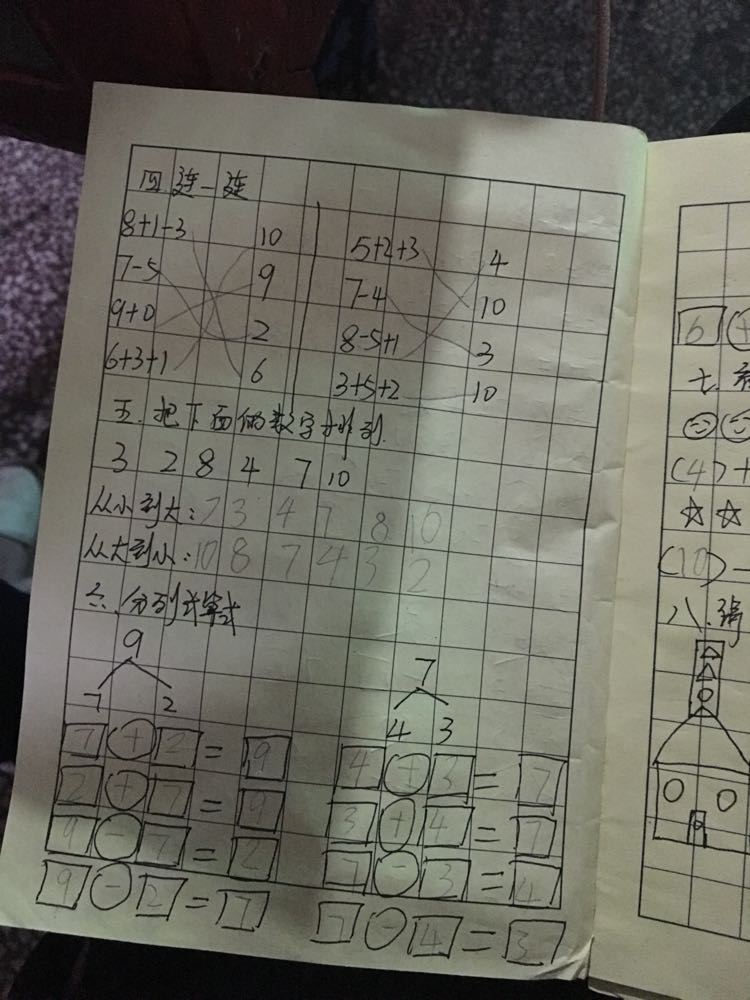 四 连一连
8+1-3 10 5+2+3 4
7-5 9 7-4 10
9+0 2 8-5+1 3
6+3+1 6 3+5+2 10
五.把下面的数字排列.
3 2 8 4 7 10
从小到大:2 3 4 7 8 10
从大到小:10 8 7 4 3 2
六.分列式算式
9 7
7 2 4 3
7+2=9 4+3=7
2+7=9 3+4=7
9-7=2 7-3=4
9-2=7 7-4=3
6 +
七.
(4)+
(10)-
八.